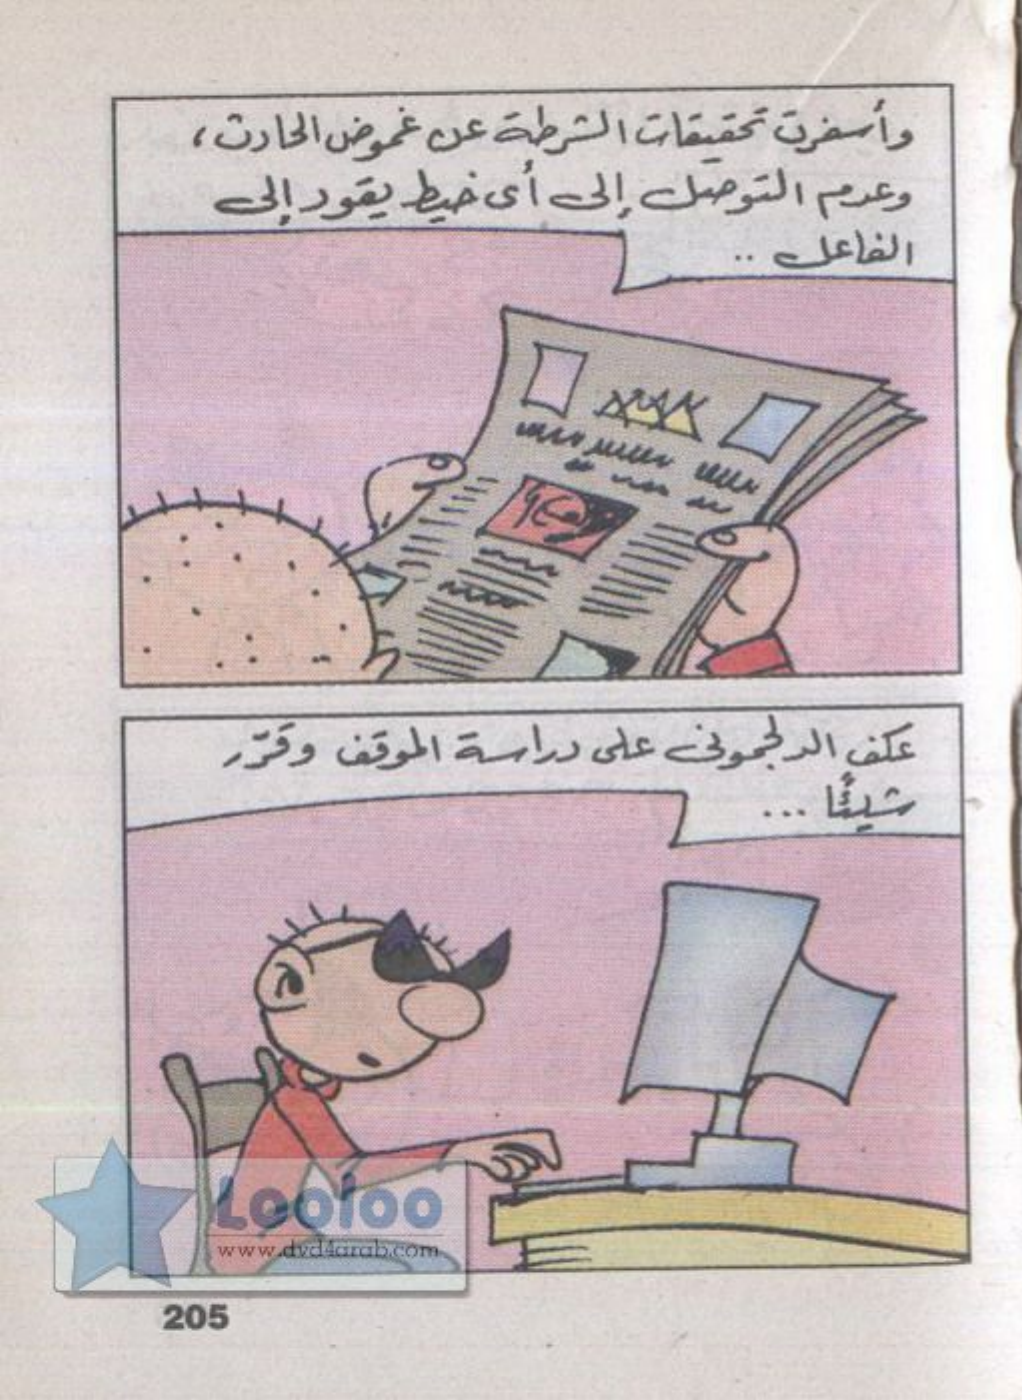 وأسفرت تحقيقات الشرطة عن غموض الحادث،
وعدم التوصل إلى أى خيط يقود إلى
الفاعل ..
عكف الدلجمونى على دراسة الموقف وقرّر
شيئًا ...
Looloo
www.dvd4arab.com
205